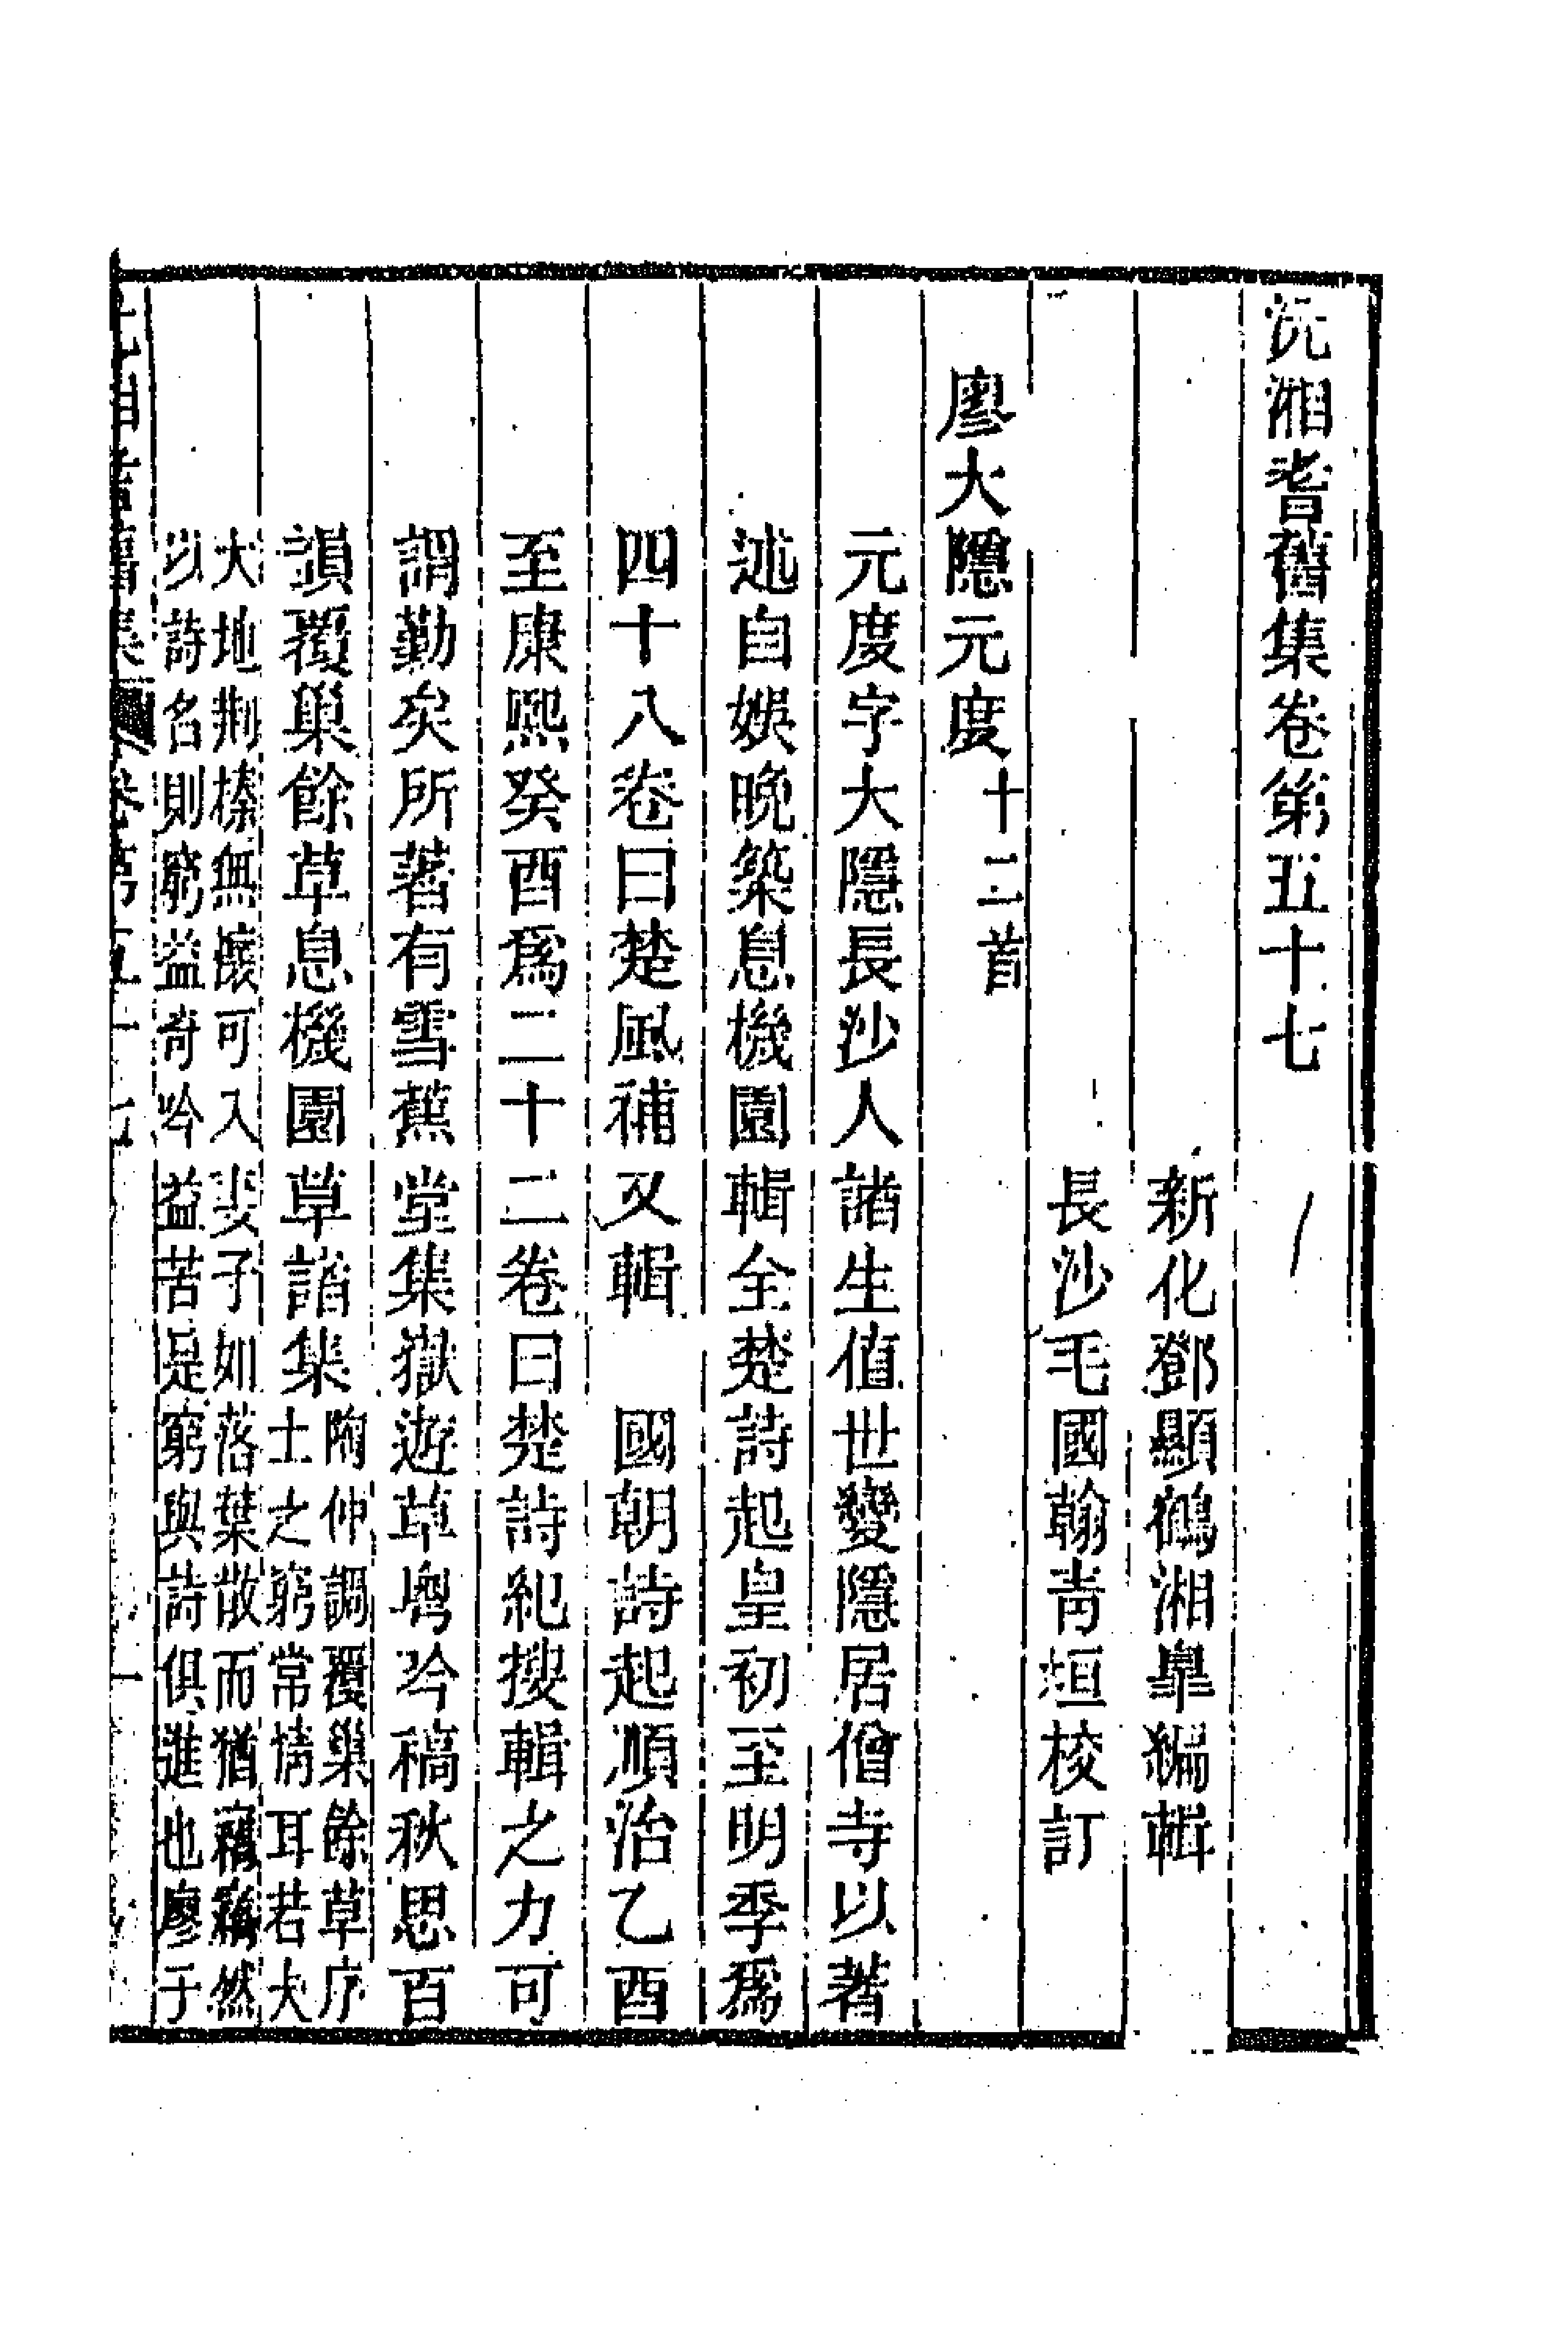 沅湘耆舊集卷第五十七
新化鄧顯鶴湘皐編輯
長沙毛國翰靑垣校訂
廖大隱元度十二首
元度字大隱長沙人諸生值世變隱居僧寺以著
述自娛晚築息機園輯全楚詩起皇初至明季爲
四十八卷曰楚風補又輯　國朝詩起順治乙酉
至康熙癸酉爲二十二卷曰楚詩紀搜輯之力可
謂勤矣所著有雪蕉堂集嶽遊草粵吟稿秋思百
韻覆巢餘草息機園草諸集
陶仲調覆巢餘草序
士之窮常情耳若夫
大地荆榛無讓可入妻子如落葉散而猶竊竊然
以詩名則窮益奇吟益苦是窮與詩俱進也廖子
沅湘耆舊集
卷第五十七
一